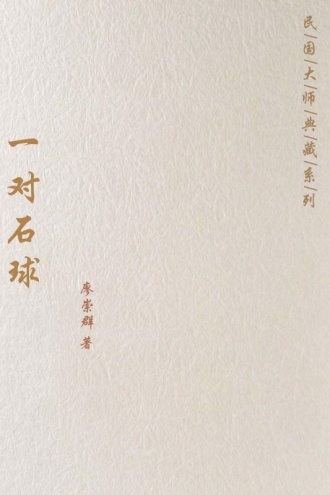 民|国|大|师|典|藏|系|列
一对石球
廖崇群 著